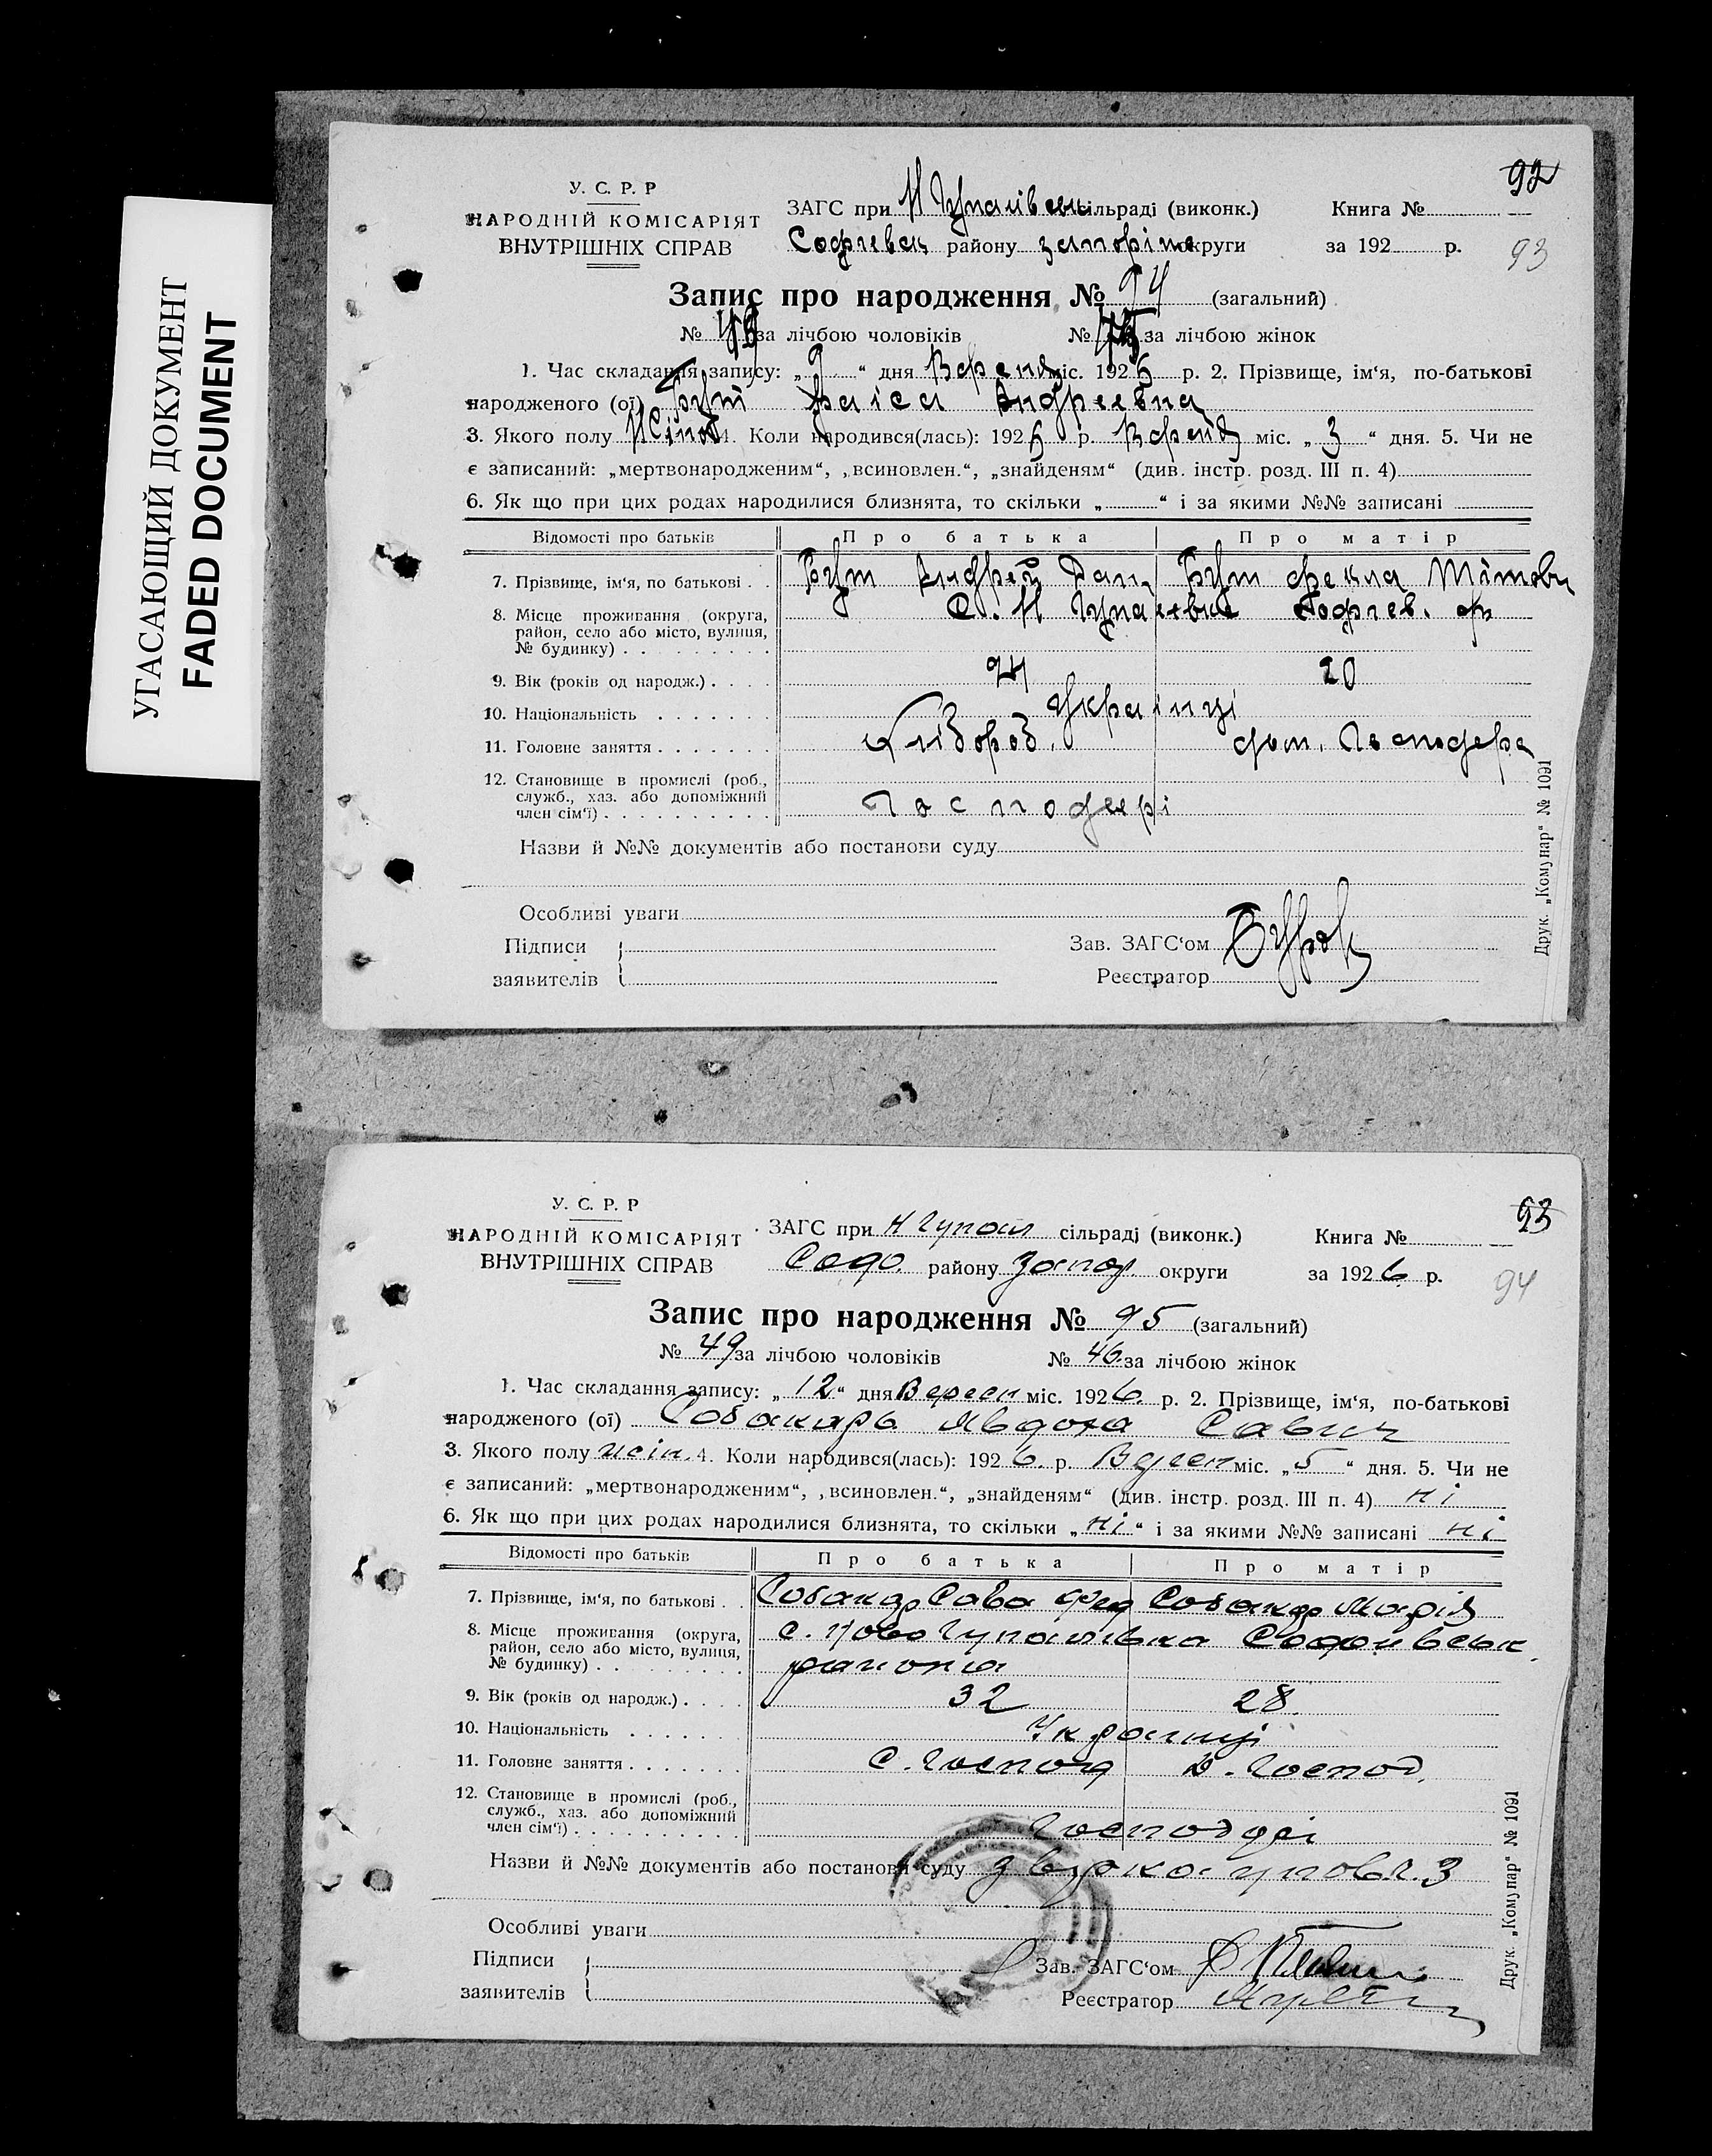 УГАСАЮЩИЙ ДОКУМЕНТ
FADED DOCUMENT
92
93
У. С. Р. Р
НАРОДНІЙ КОМІСАРІЯТ
ВНУТРІШНІХ СПРАВ
ЗАГС при сільраді (виконк.) Книга №
району округи за 192 р.
Запис про народження № 94 (загальний)
№ за лічбою чоловіків № за лічбою жінок
1. Час складання запису: „ 9 “ дня міс. 1926 р. 2. Прізвище, ім‘я, по-батькові
народженого (ої) Бут Раіса Андреевна
3. Якого полу Жіноч 4. Коли народився(лась): 1926 р. міс. „ 3 “ дня. 5. Чи не
є записаний: „мертвонародженим“, „всиновлен.“, „знайденям“ (див. інстр. розд. III п. 4)
6. Як що при цих родах народилися близнята, то скільки „ “ і за якими №№ записані
Відомості про батьків Про батька Про матір
7. Прізвище, ім‘я, по батькові Бут Андрей Дан Бут Фекла Тітовн
8. Місце проживання (округа, С. Н
район, село або місто, вулиця,
№ будинку)
9. Вік (років од народж.) 24 20
10. Національність Украінці
11. Головне заняття Хлібороб. дом. Господера
12. Становище в промислі (роб.,
служб., хаз. або допоміжний
член сім‘ї) Господері
Назви й №№ документів або постанови суду
Особливі уваги
Підписи
заявителів
Зав. ЗАГС‘ом
Реєстратор
Друк. „Комунар“ № 1091
93
94
У. С. Р. Р
НАРОДНІЙ КОМІСАРІЯТ
ВНУТРІШНІХ СПРАВ
ЗАГС при Н Гупал сільраді (виконк.) Книга №
Соф. району Запор округи за 1926 р.
Запис про народження № 95 (загальний)
№ 49 за лічбою чоловіків № 46 за лічбою жінок
1. Час складання запису: „ 12 “ дня Вересн міс. 1926. р. 2. Прізвище, ім‘я, по-батькові
народженого (ої) Собакарь Явдоха Савич
3. Якого полу жін. 4. Коли народився(лась): 1926. р. Верес міс. „ 5 “ дня. 5. Чи не
є записаний: „мертвонародженим“, „всиновлен.“, „знайденям“ (див. інстр. розд. III п. 4) ні
6. Як що при цих родах народилися близнята, то скільки „ ні “ і за якими №№ записані ні
Відомості про батьків Про батька Про матір
7. Прізвище, ім‘я, по батькові Собакар Сава Фед Собакар Марія
8. Місце проживання (округа, с. Ново Гупалівка Софиівськ.
район, село або місто, вулиця, района
№ будинку)
9. Вік (років од народж.) 32 28
10. Національність Украінці
11. Головне заняття С. Господ Д. Господ.
12. Становище в промислі (роб.,
служб., хаз. або допоміжний
член сім‘ї) Господарі
Назви й №№ документів або постанови суду
Особливі уваги
Підписи
заявителів
Зав. ЗАГС‘ом
Реєстратор
Друк. „Комунар“ № 1091